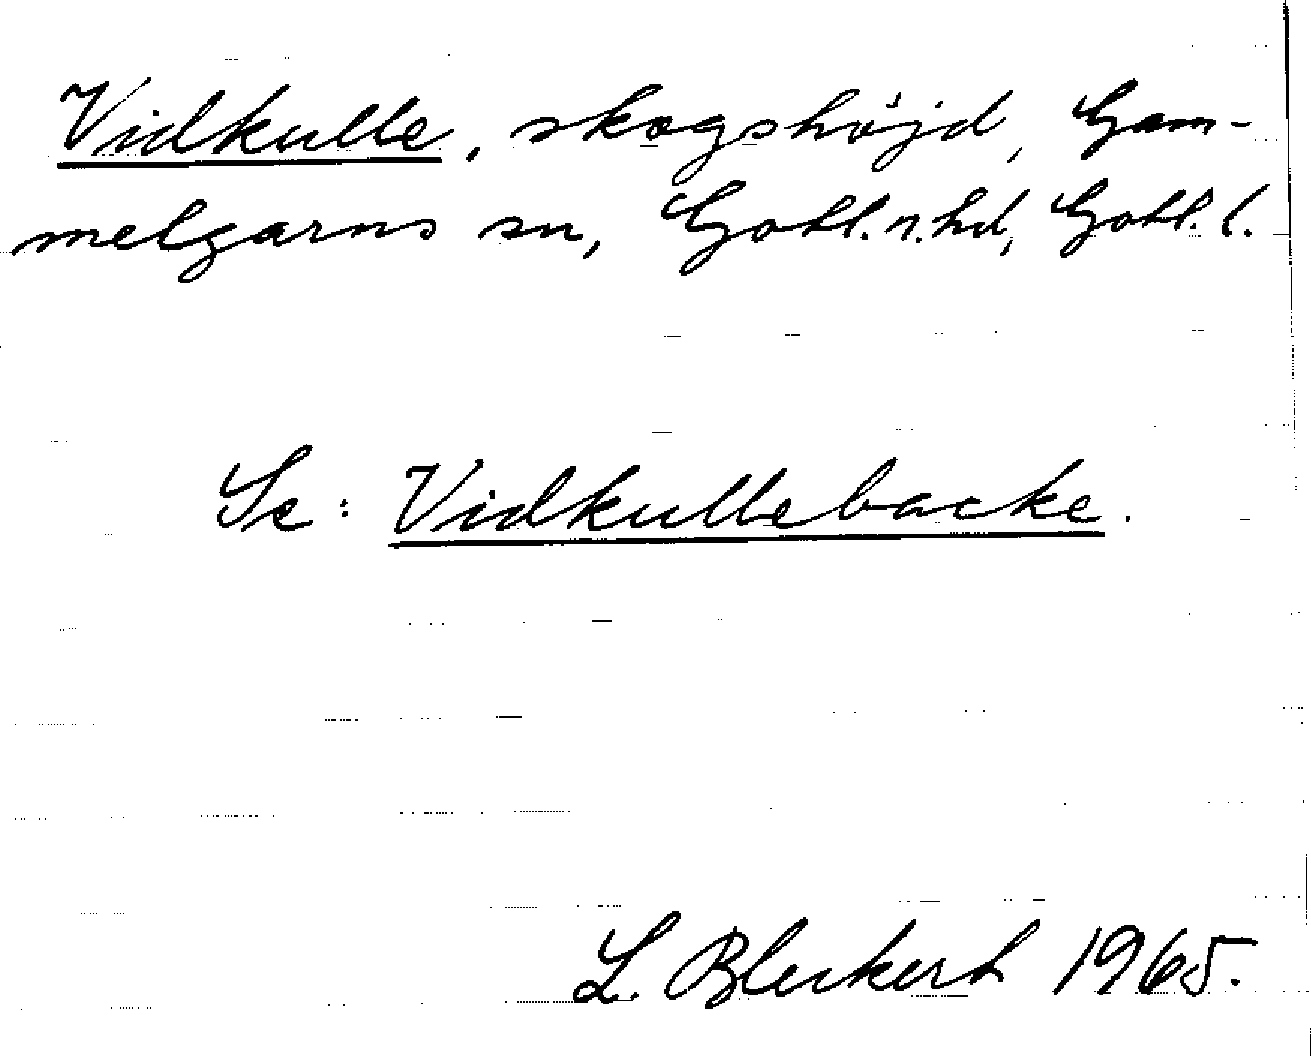 Vidkulle, skogshöjd, Gam-
melgarns sn, Gotl. n. hd, Gotl. l.
Se: Vidkullebacke.
L. Bleckert 1965.